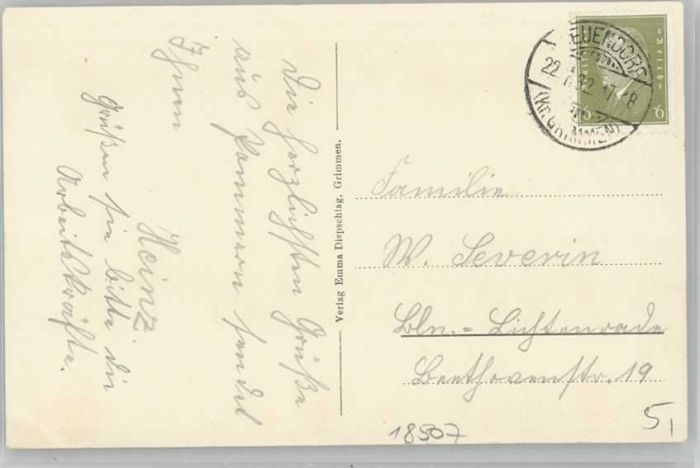 Die herzlichsten Grüße
aus Pommern sendet
Ihnen
Heinz
Grüßen sie bitte die
Arbeitskräfte.
Verlag Emma Diepschlag, Grimmen.
Familie
W. Severin
Bln.-Lichtenrade
Beethovenstr. 19
NEUENDORF
22
32 17-18
(KR. GRIMMEN)
6
18507
5,